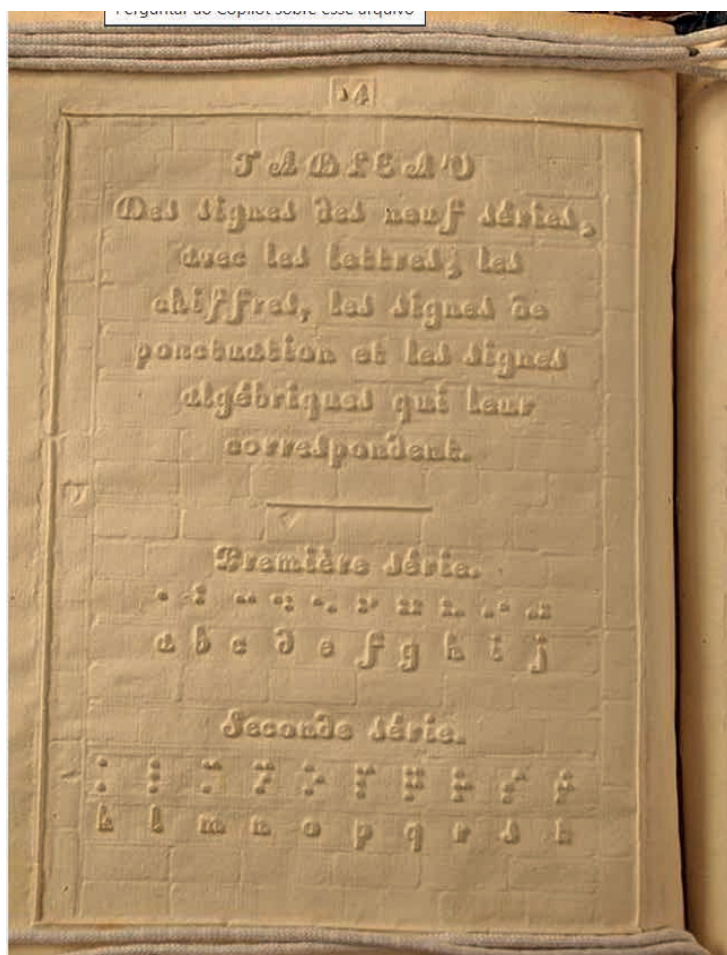 Perguntar ao Copilot sobre esse arquivo
14
TABLEAU
Des signes des neuf séries,
avec les lettres, les
chiffres, les signes de
ponctuation et les signes
algébriques qui leur
correspondent.
Première série.
a b c d e f g h i j
Seconde série.
k l m n o p q r s t